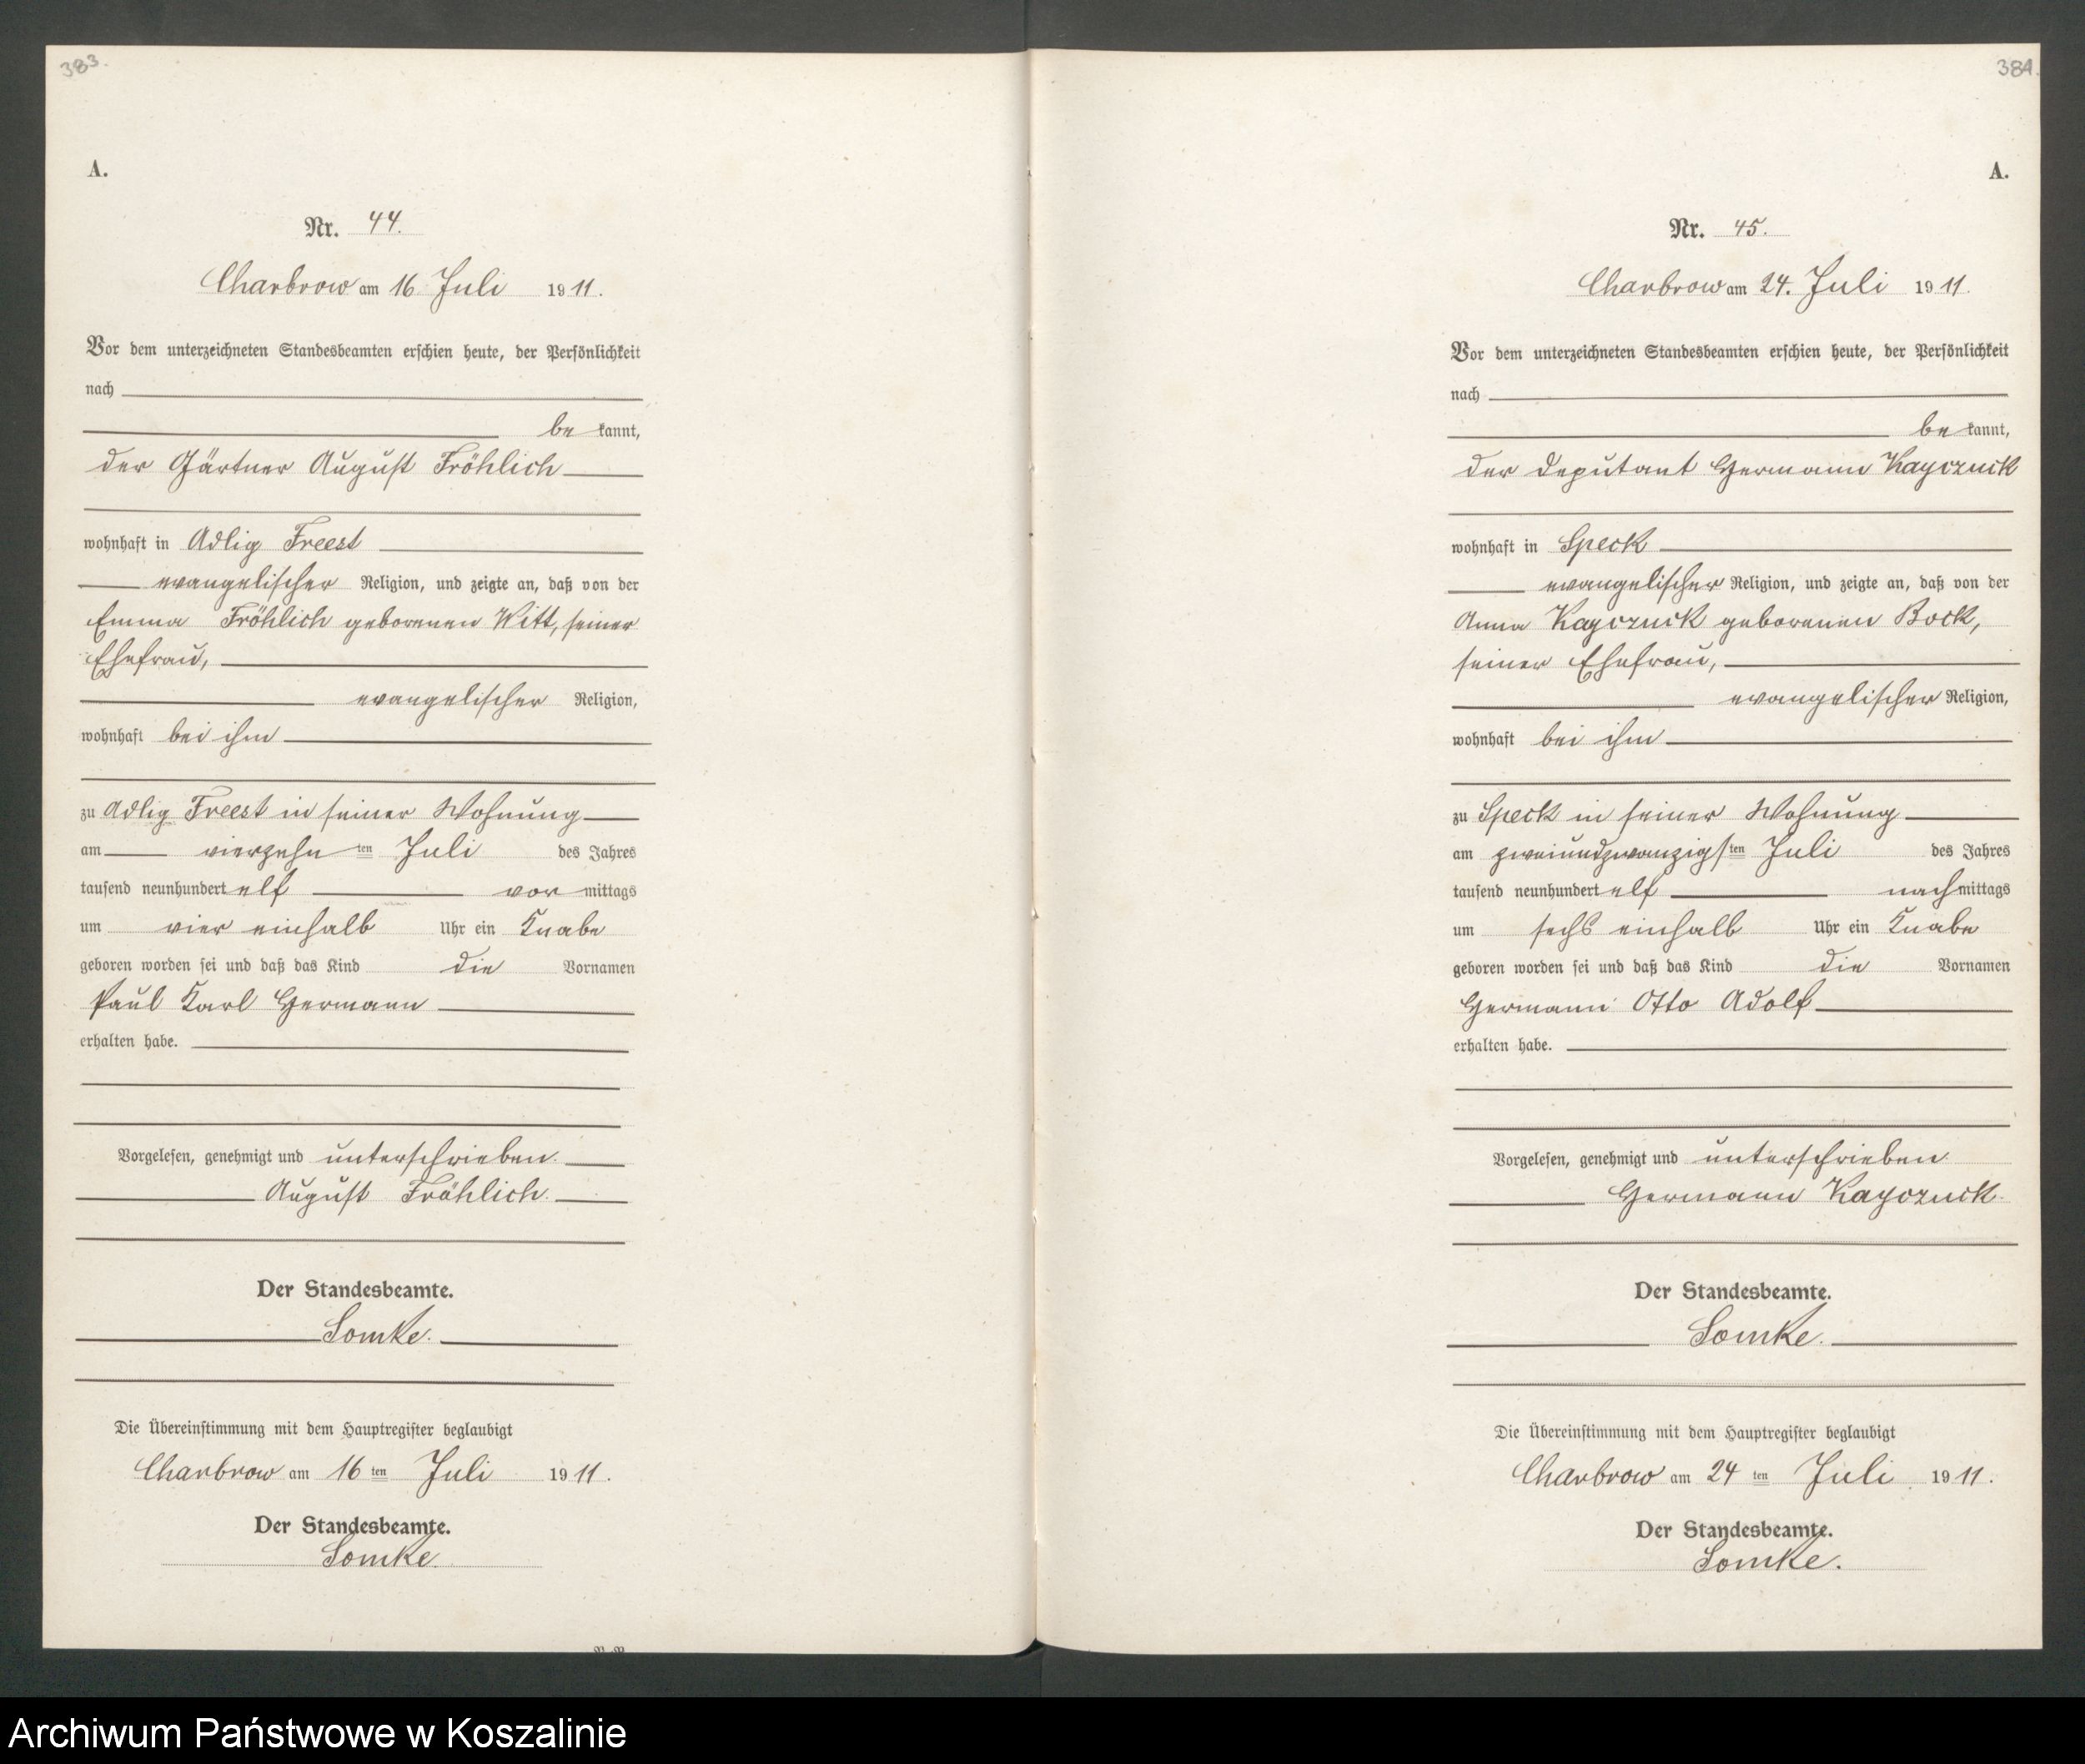 383.
A.
Nr. 44.
Charbrow am 16 Juli 1911.
Vor dem unterzeichneten Standesbeamten erschien heute, der Persönlichkeit
nach
be kannt,
der Gärtner August Fröhlich
wohnhaft in Adlig Freest
evangelischer Religion, und zeigte an, daß von der
Emma Fröhlich geborenen Witt, seiner
Ehefrau,
evangelischer Religion,
wohnhaft bei ihm
zu Adlig Freest in seiner Wohnung
am vierzehn ten Juli des Jahres
tausend neunhundert elf vor mittags
um vier einhalb Uhr ein Knabe
geboren worden sei und daß das Kind die Vornamen
Paul Karl Hermann
erhalten habe.
Vorgelesen, genehmigt und unterschrieben.
August Fröhlich.
Der Standesbeamte.
Lomke.
Die Übereinstimmung mit dem Hauptregister beglaubigt
Charbrow am 16 ten Juli 1911.
Der Standesbeamte.
Lomke.
384.
A.
Nr. 45.
Charbrow am 24. Juli 1911.
Vor dem unterzeichneten Standesbeamten erschien heute, der Persönlichkeit
nach
be kannt,
der Deputant Hermann Kayczuck
wohnhaft in Speck
evangelischer Religion, und zeigte an, daß von der
Anna Kayczuck geborenen Bock,
seiner Ehefrau,
evangelischer Religion,
wohnhaft bei ihm
zu Speck in seiner Wohnung
am zweiundzwanzigs ten Juli des Jahres
tausend neunhundert elf nach mittags
um sechs einhalb Uhr ein Knabe
geboren worden sei und daß das Kind die Vornamen
Hermann Otto Adolf
erhalten habe.
Vorgelesen, genehmigt und unterschrieben
Hermann Kayczuck.
Der Standesbeamte.
Lomke.
Die Übereinstimmung mit dem Hauptregister beglaubigt
Charbrow am 24 ten Juli 1911.
Der Standesbeamte.
Lomke.
Archiwum Państwowe w Koszalinie